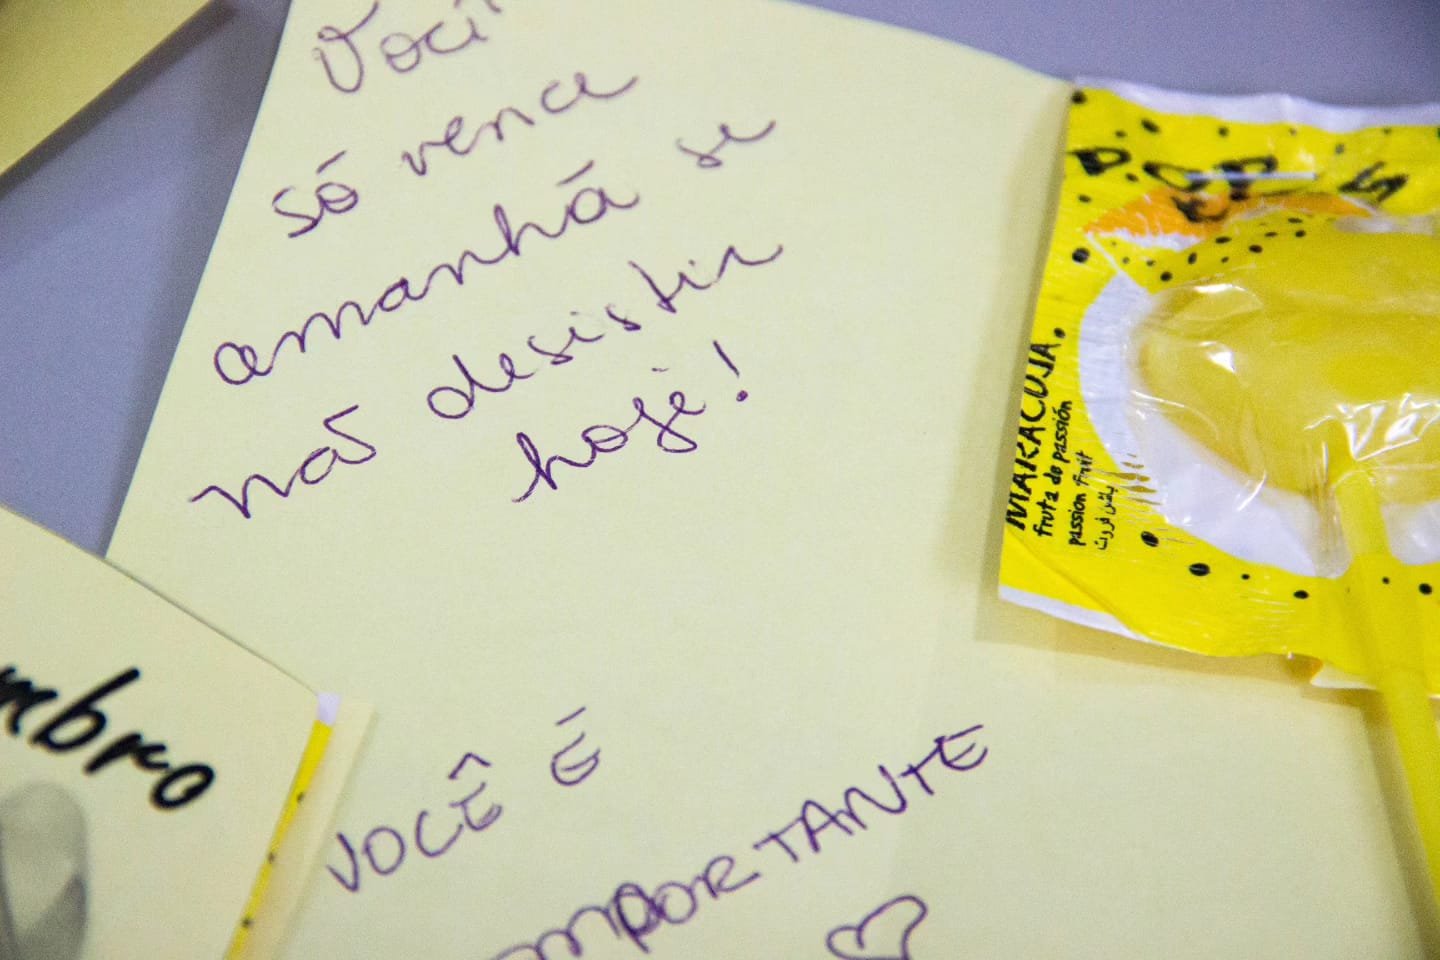 Você
só vence
amanhã se
não desistir
hoje!
VOCÊ É
IMPORTANTE
mbro
MARACUJÁ.
fruta de passión
passion fruit
باشن فروت